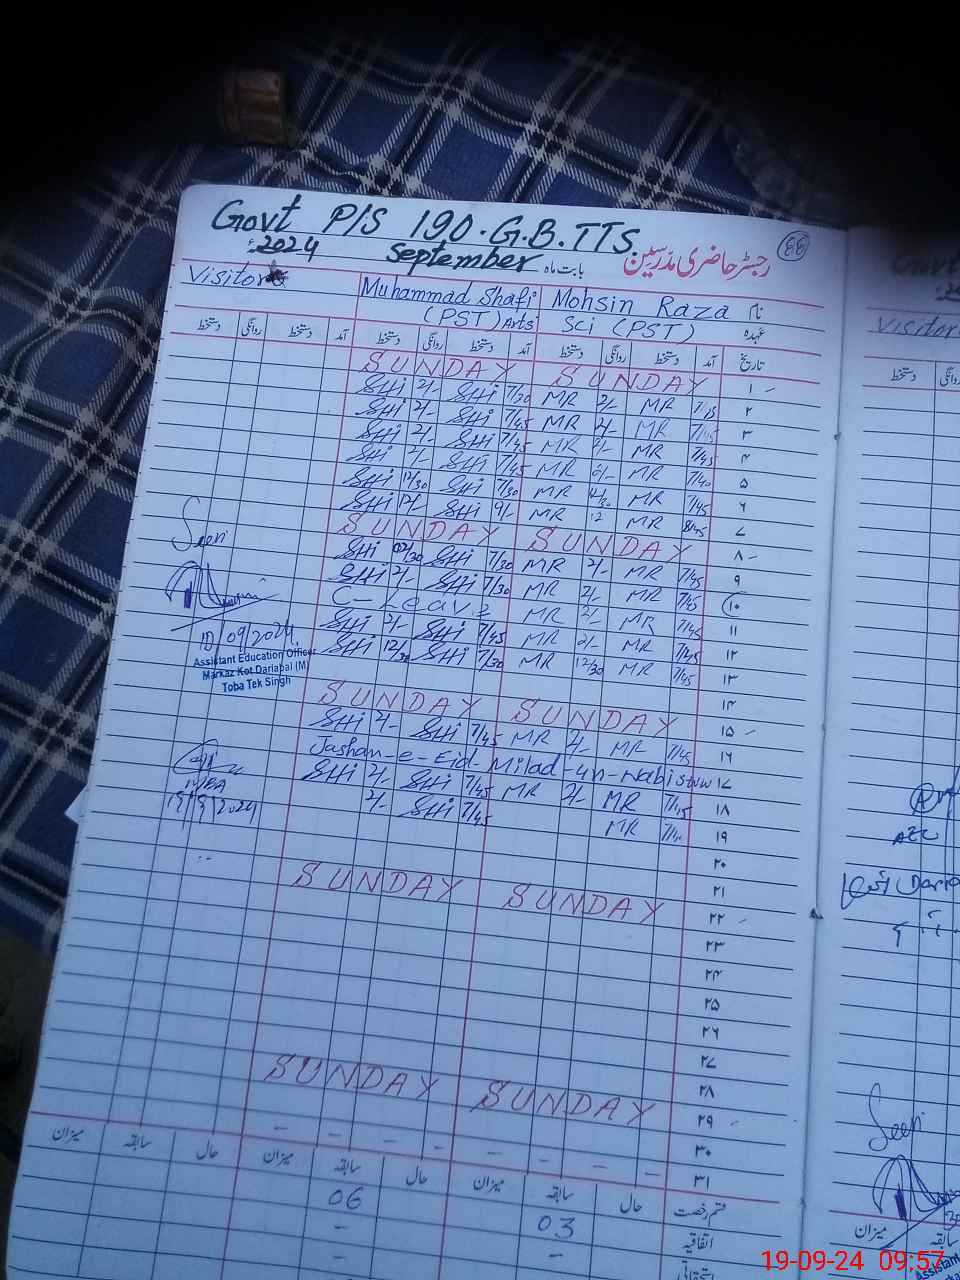 Govt P/S 190.G.B.TTS.
رجسٹر حاضری مدرسین
2024ء September بابت ماہ
Visitor Muhammad Shafi Mohsin Raza نام
(PST) Arts Sci (PST) عہدہ
دستخط روانگی دستخط آمد دستخط روانگی دستخط آمد دستخط روانگی دستخط آمد تاریخ
SUNDAY SUNDAY ۱
SHi 2/- SHi 7/30 MR 2/- MR ۲
SHi 2/- SHi 7/45 MR 2/- MR ۳
SHi 2/- SHi 7/45 MR 2/- MR 7/45 ۴
SHi 2/- SHi 7/45 MR 2/- MR 7/40 ۵
SHi 12/30 SHi 7/30 MR 12/30 MR 7/45 ۶
SHi 12/- SHi 9/- MR 12 MR 8/45 ۷
SUNDAY SUNDAY ۸
SHi SHi 7/30 MR 2/- MR 7/45 ۹
SHi 2/- SHi 7/30 MR 2/- MR 7/45 ۱۰
C-Leave MR 2/- MR 7/45 ۱۱
SHi 2/- SHi 7/45 MR 2/- MR 7/45 ۱۲
SHi 12/30 SHi 7/30 MR 12/30 MR 7/45 ۱۳
۱۴
SUNDAY SUNDAY ۱۵
SHi 2/- SHi 7/45 MR 2/- MR 7/45 ۱۶
Jashan-e-Eid-Milad-un-Nabi ۱۷
SHi 2/- SHi 7/45 MR 2/- MR ۱۸
2/- SHi 7/45 MR ۱۹
۲۰
۲۱
SUNDAY SUNDAY ۲۲
۲۳
۲۴
۲۵
۲۶
۲۷
۲۸
SUNDAY SUNDAY ۲۹
۳۰
۳۱
Seen
10/09/2024
Assistant Education Officer
Markaz Kot Dariabal (M)
Toba Tek Singh
19/9/2024
میزان سابقہ حال میزان سابقہ حال میزان سابقہ حال قسم رخصت
06 03 اتفاقیہ
استحقاقی
Govt
Visitor
دستخط روانگی
AEO
Seen
میزان سابقہ
Assistant
19-09-24 09:57